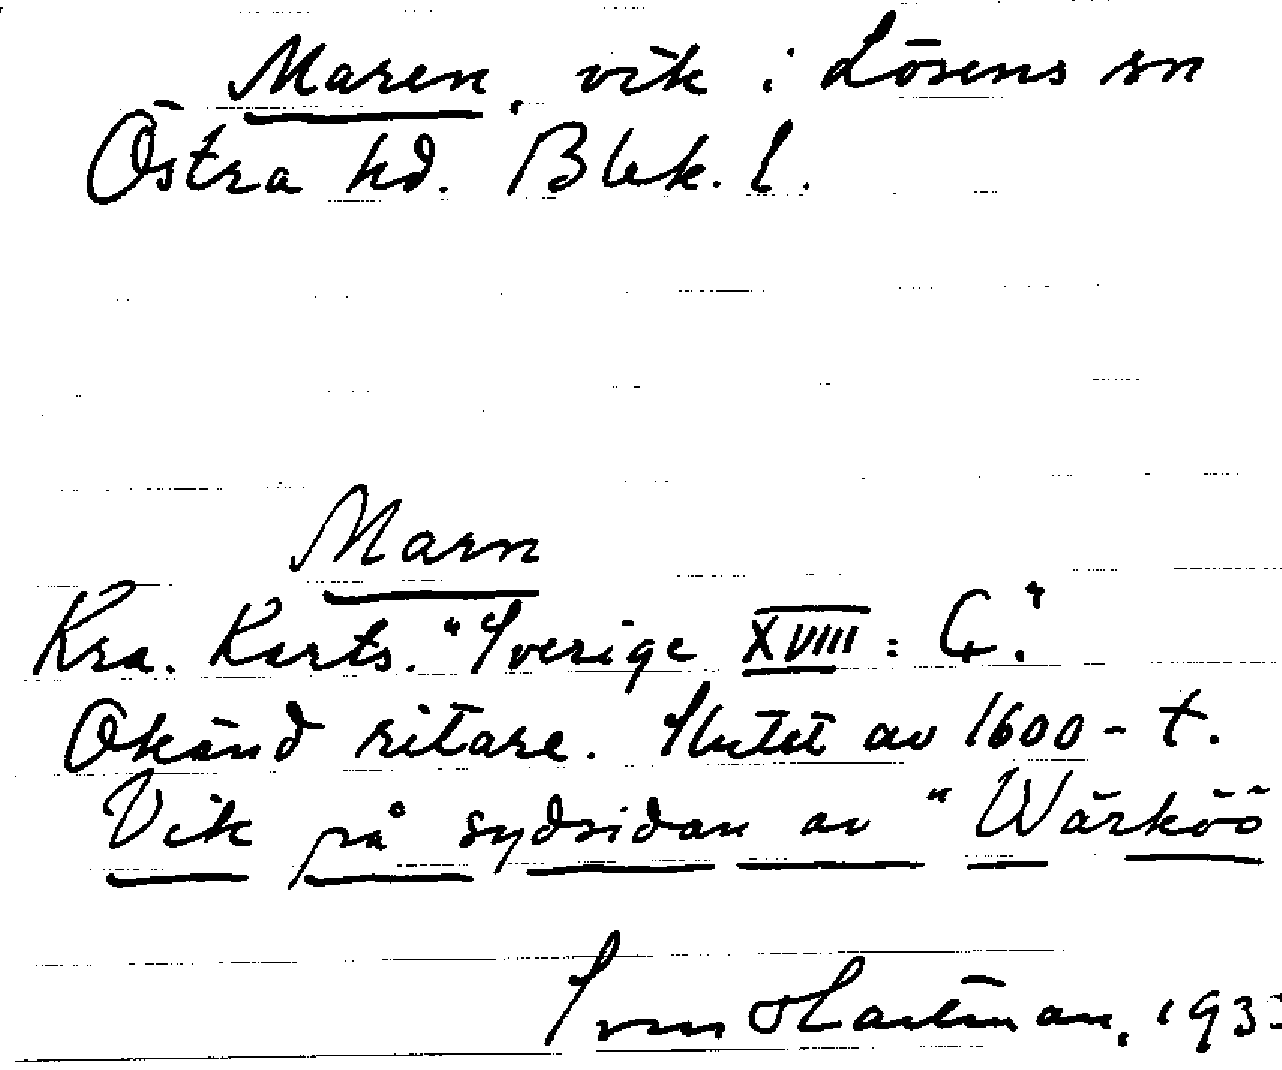 Maren, vik i Lösens sn
Östra hd. Blek. l.
Marn
Kra. Karts. "Sverige XVIII: C."
Okänd ritare. Slutet av 1600-t.
Vik på sydsidan av "Wärköö
Sven Hartman, 193